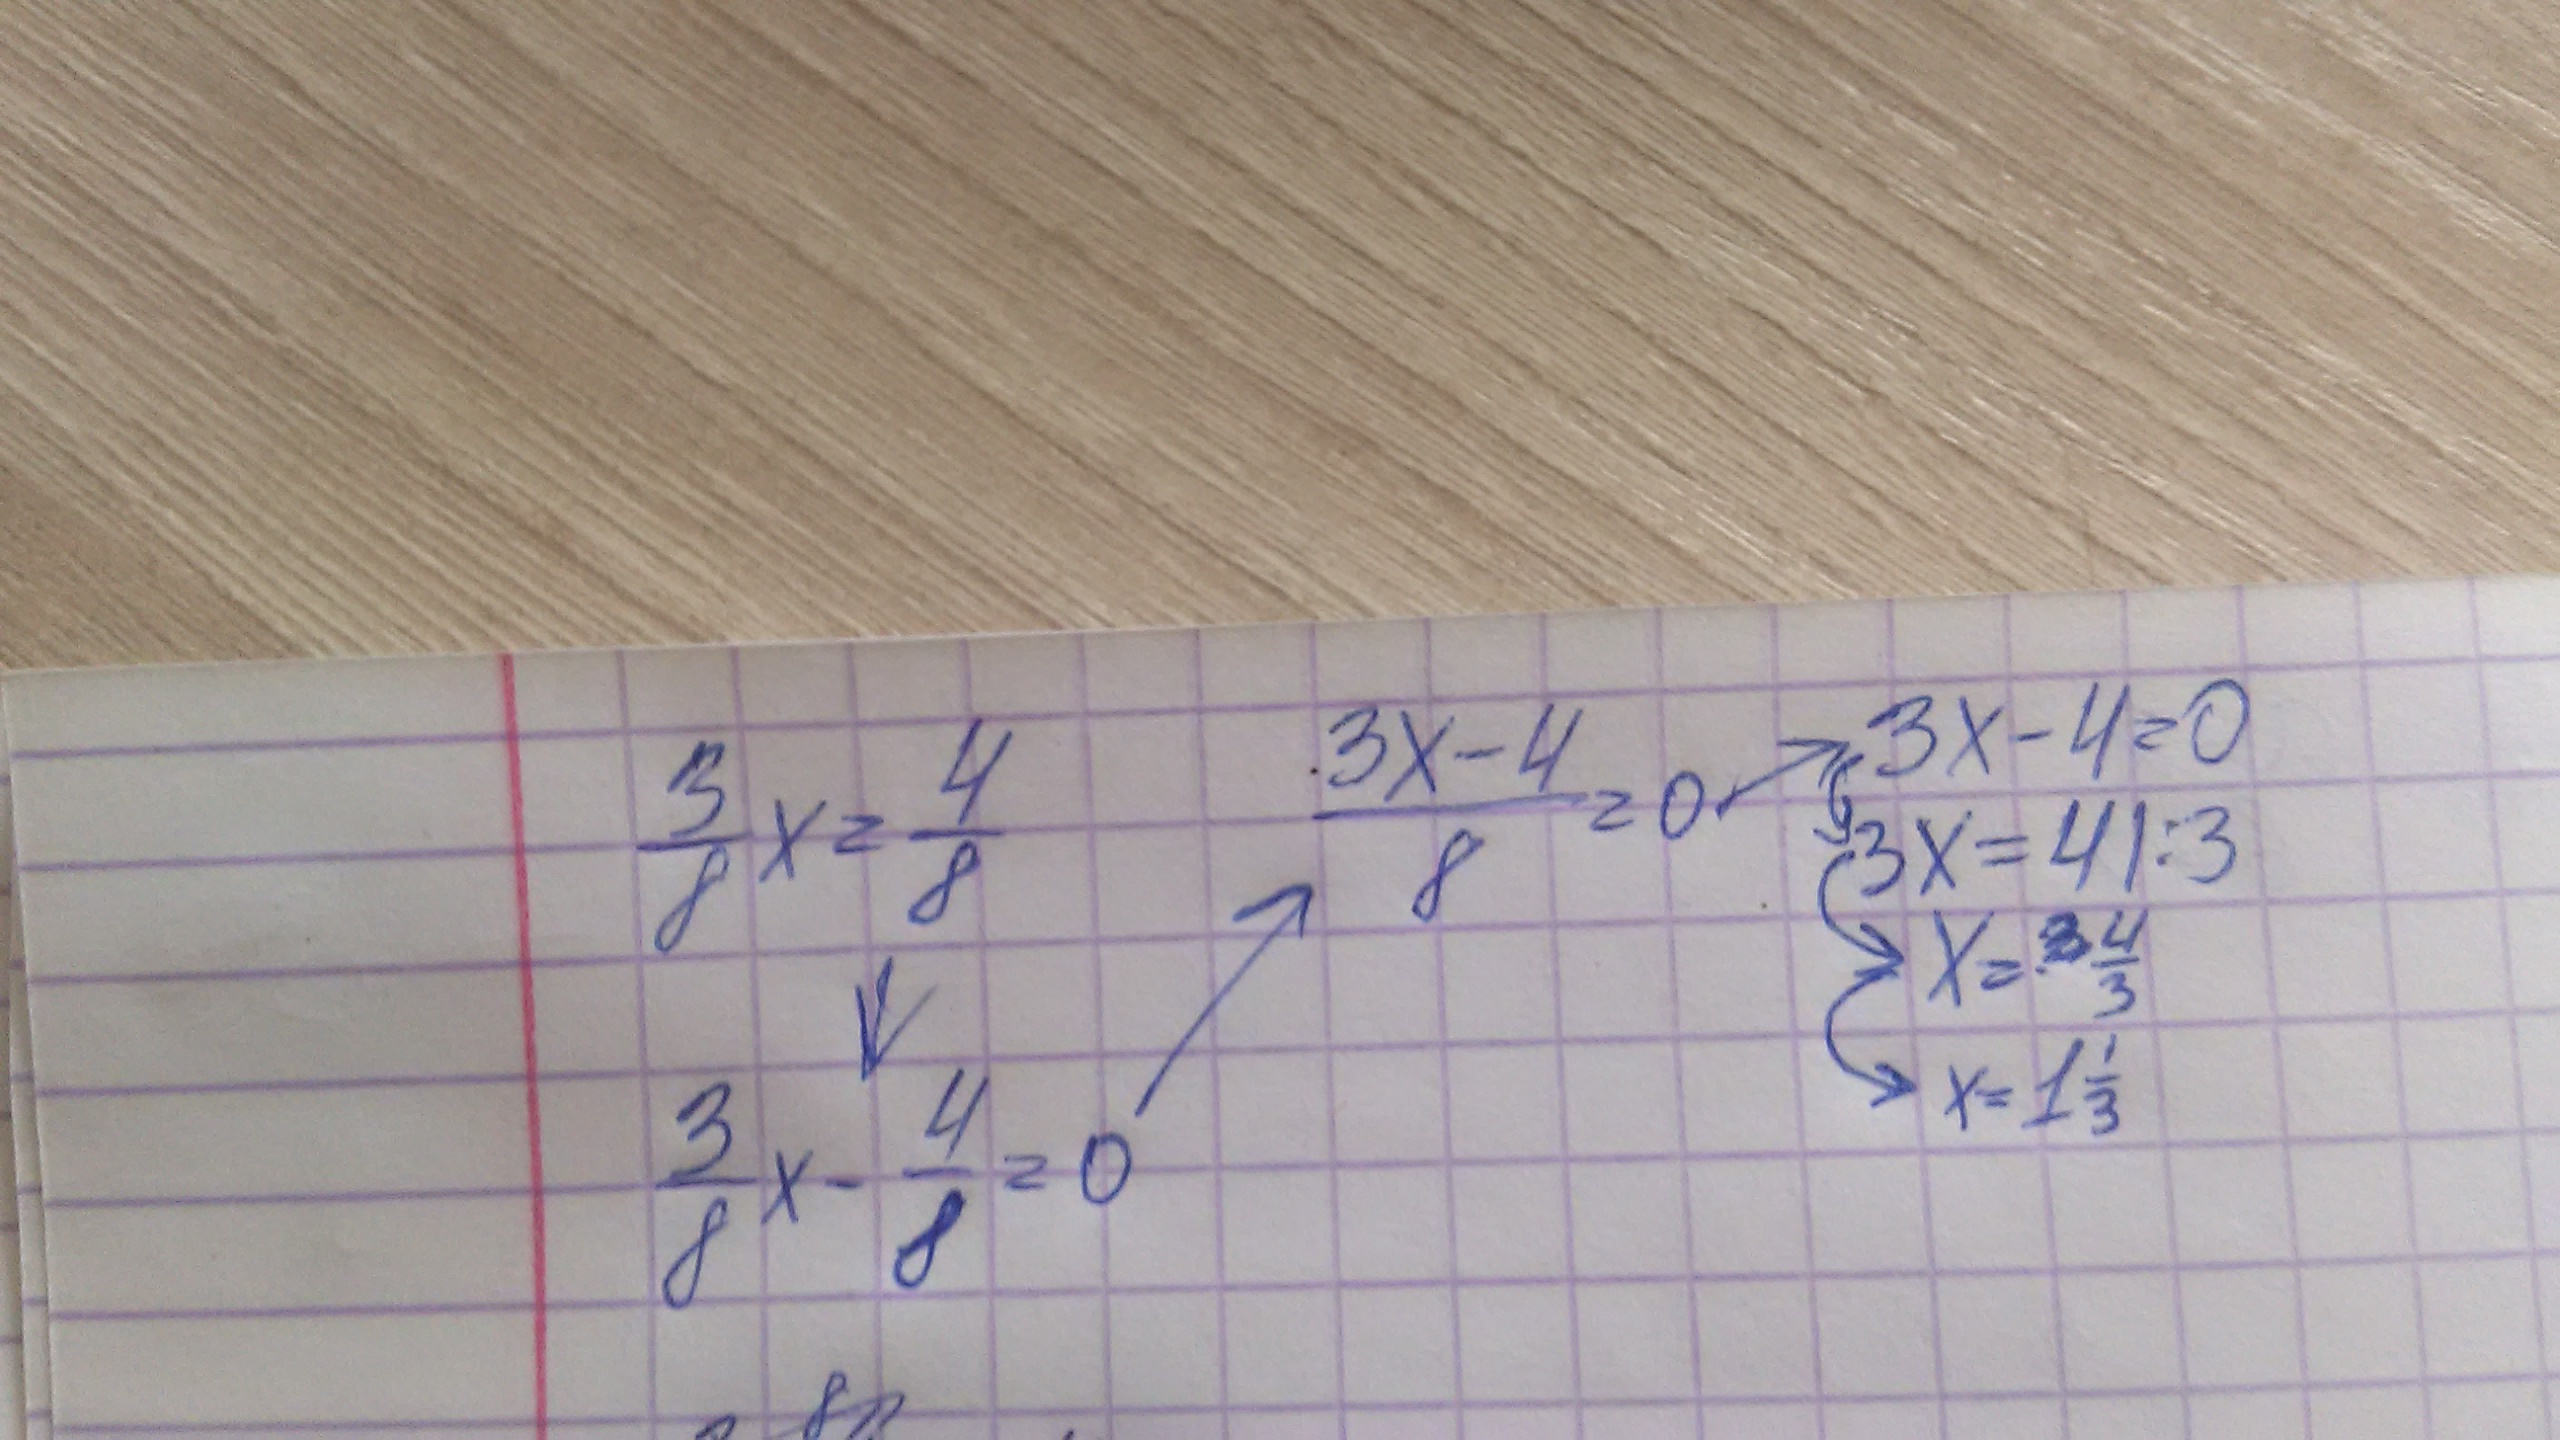 3/8 x = 4/8
3/8 x - 4/8 = 0
(3x-4)/8 = 0
3x-4=0
3x=4|:3
x= 4/3
x=1 1/3